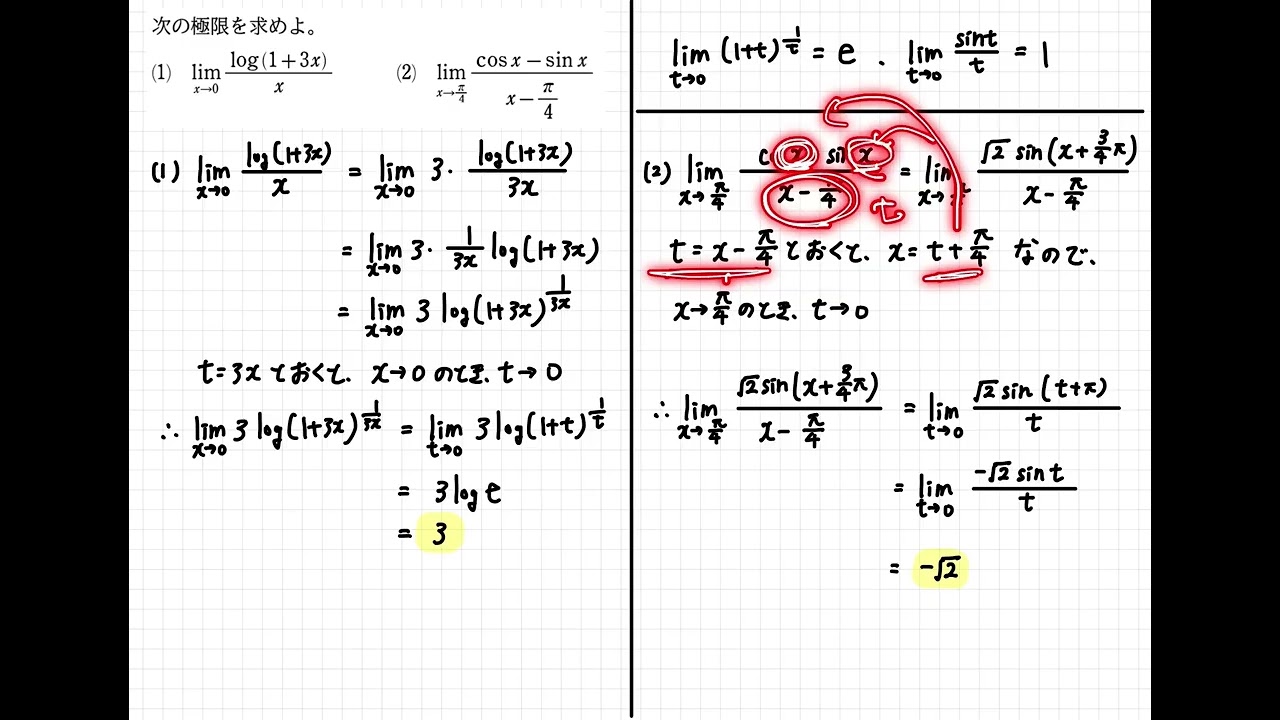 次の極限を求めよ。
(1) lim_{x→0} log(1+3x)/x (2) lim_{x→π/4} (cos x − sin x)/(x − π/4)
(1) lim_{x→0} log(1+3x)/x = lim_{x→0} 3· log(1+3x)/3x
= lim_{x→0} 3· 1/3x log(1+3x)
= lim_{x→0} 3 log(1+3x)^{1/3x}
t=3x とおくと、x→0 のとき、t→0
∴ lim_{x→0} 3 log(1+3x)^{1/3x} = lim_{t→0} 3 log(1+t)^{1/t}
= 3 log e
= 3
lim_{t→0} (1+t)^{1/t} = e 、 lim_{t→0} sin t/t = 1
(2) lim_{x→π/4} x sin x / x − π/4 = lim √2 sin(x+3/4π)/(x − π/4)
t
t = x − π/4 とおくと、x = t + π/4 なので、
x→π/4 のとき、t→0
∴ lim_{x→π/4} √2 sin(x+3/4π)/(x − π/4) = lim_{t→0} √2 sin(t+π)/t
= lim_{t→0} −√2 sin t/t
= −√2